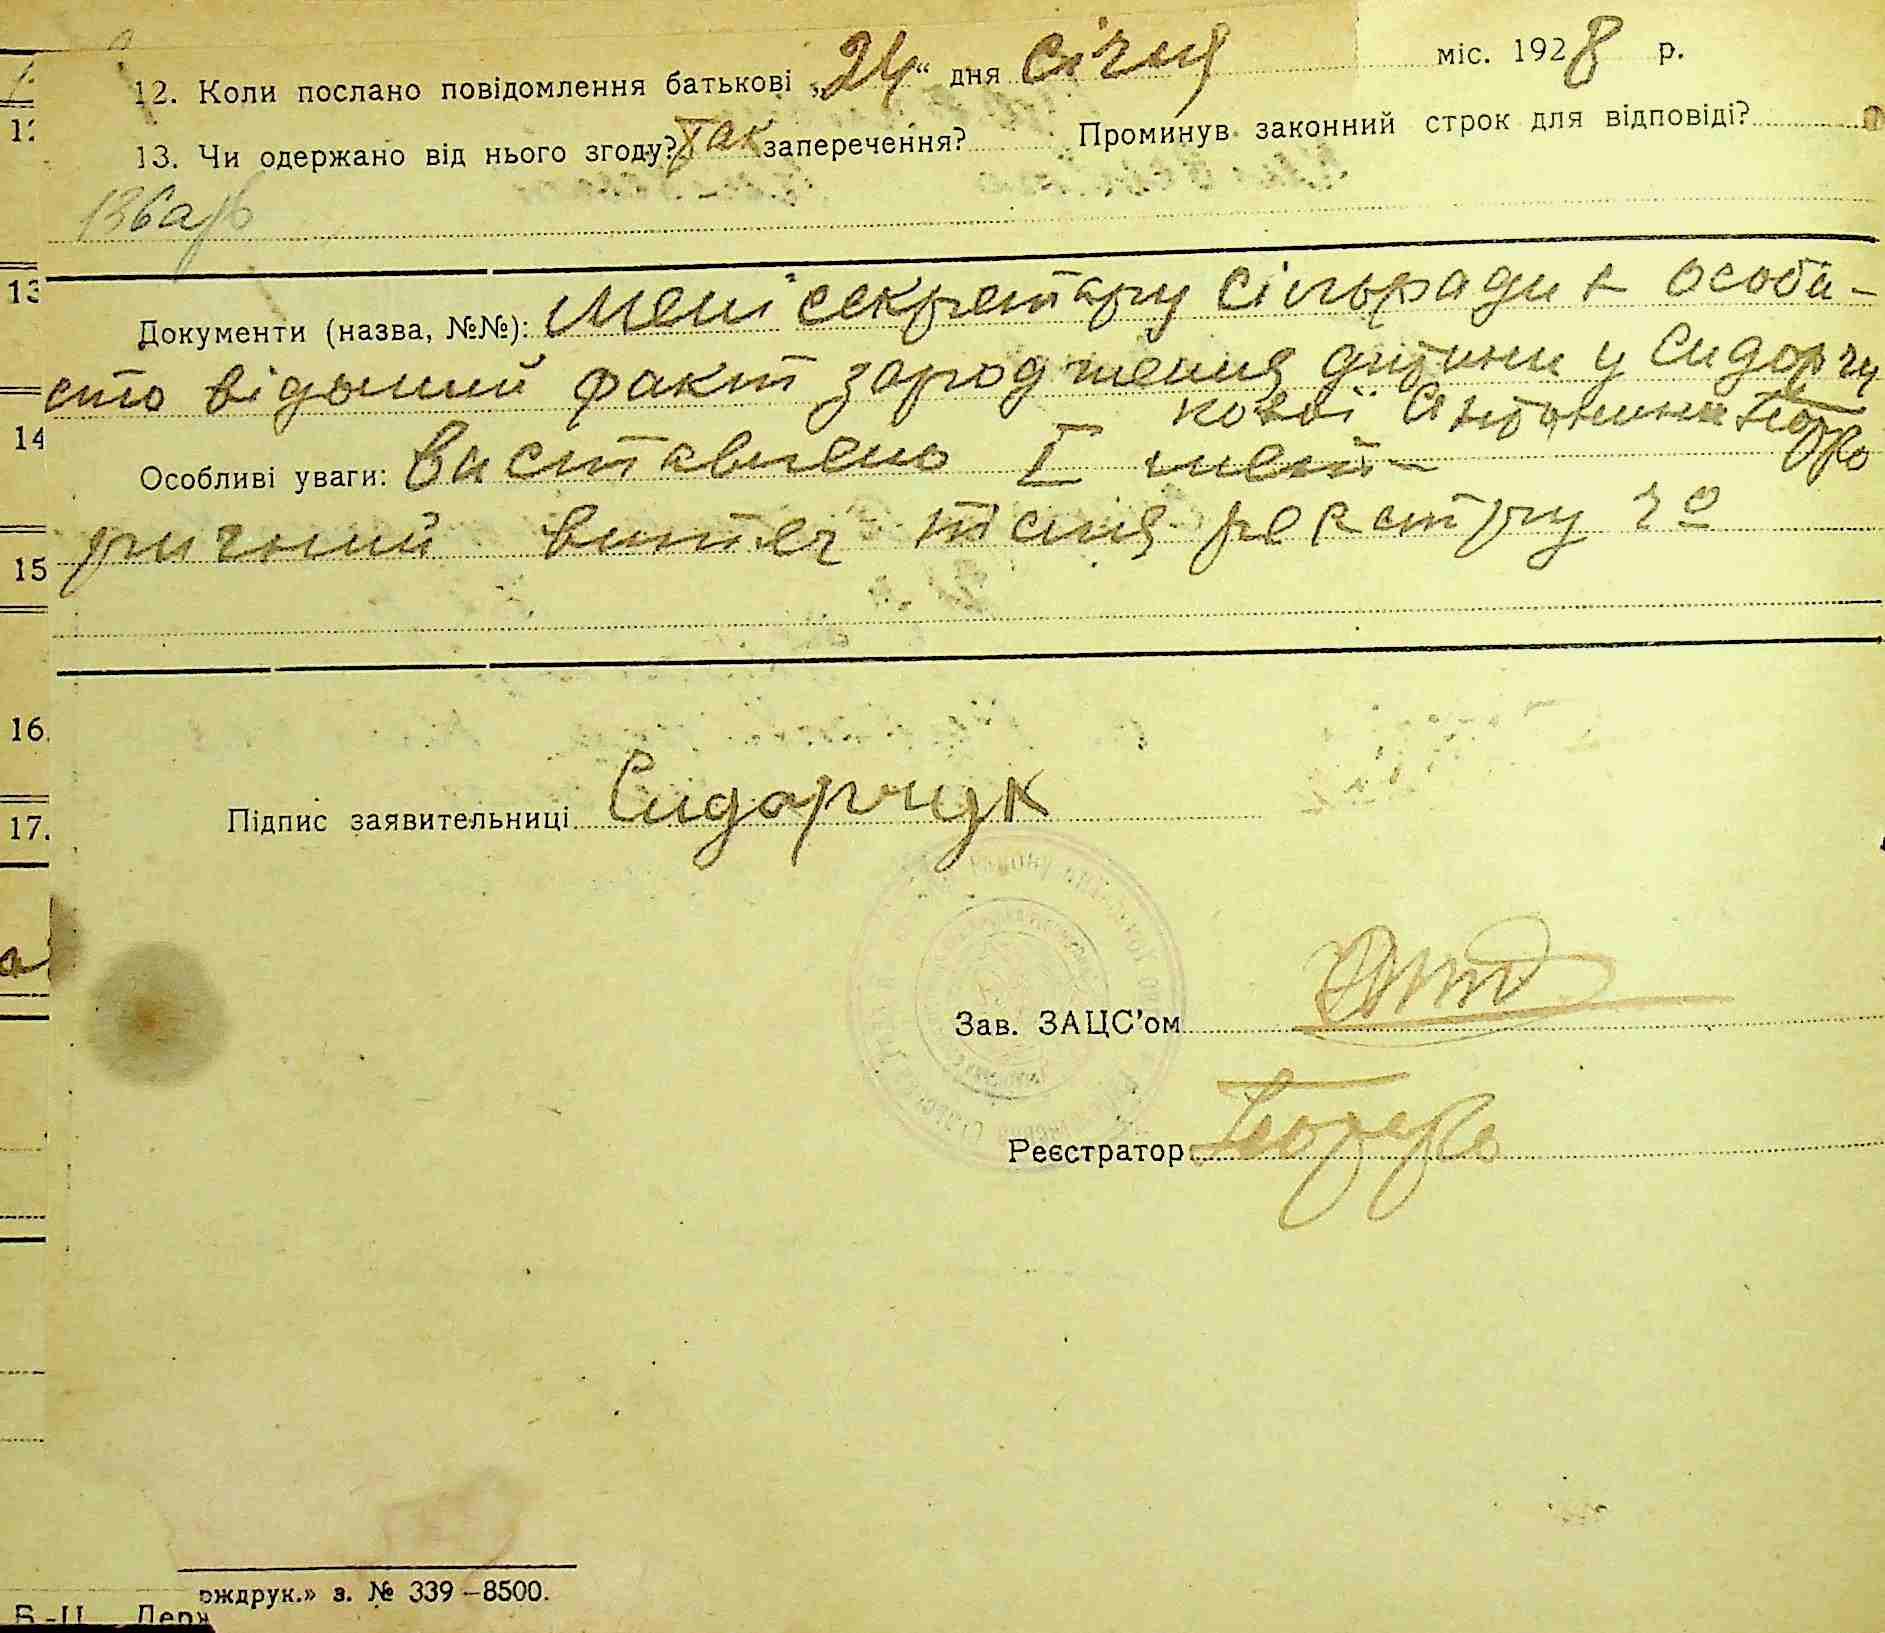 12. Коли послано повідомлення батькові „24“ дня січня міс. 1928 р.
13. Чи одержано від нього згоду? так заперечення? Проминув законний строк для відповіді?
136
Документи (назва, №№): Мені секретару сільради є особи-
сто відомий факт зародження дитини у Сидорчу
кової Антонини
Особливі уваги: Виставлено I мет-
ричний витяг тася реєстру 2о
Підпис заявительниці Сидорчук
Зав. ЗАЦС'ом
Реєстратор
ржздрук.» з. № 339–8500.
Б.-Ц. Держ
13
14
15
16.
17.